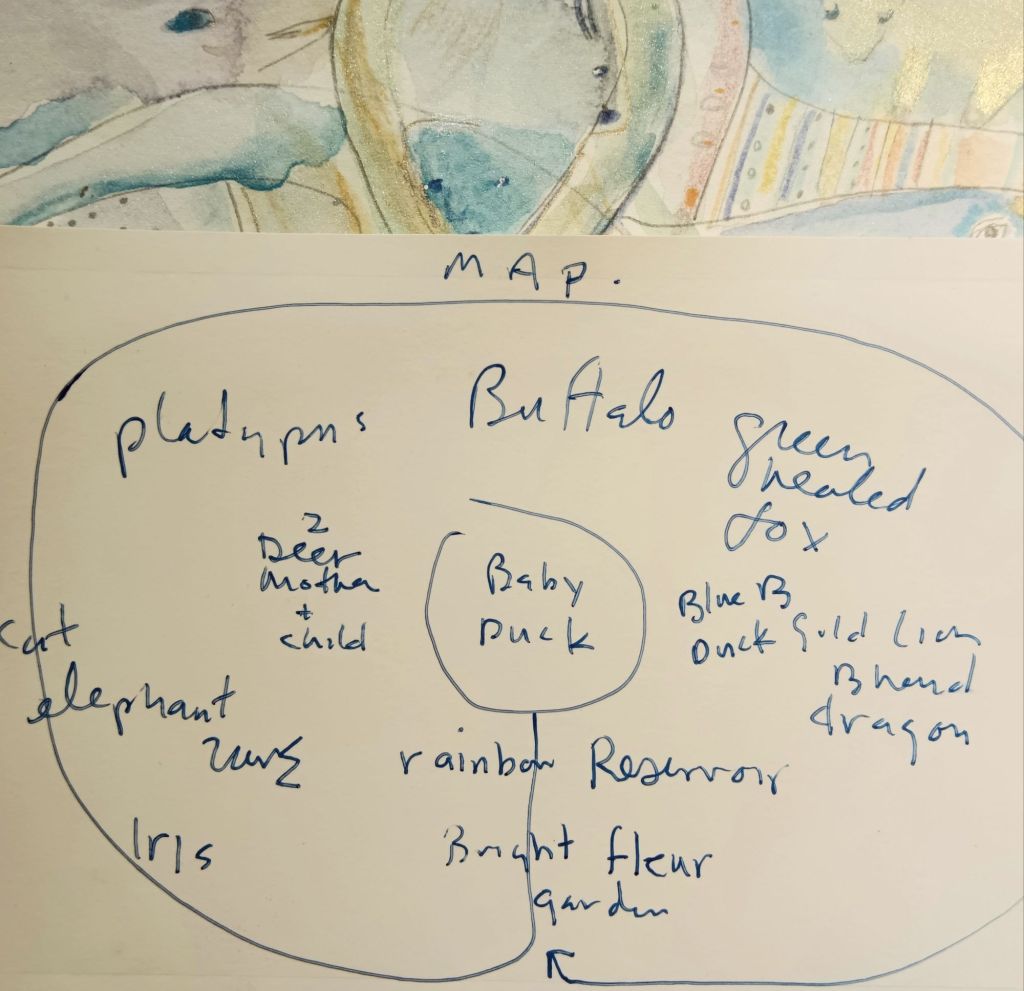 MAP.
platypus
Buffalo
green
healed
fox
2
Deer
mother
+
child
Baby
Duck
Blue B
Duck
Gold Lion
B head
dragon
cat
elephant
rainbow Reservoir
Iris
Bright fleur
garden